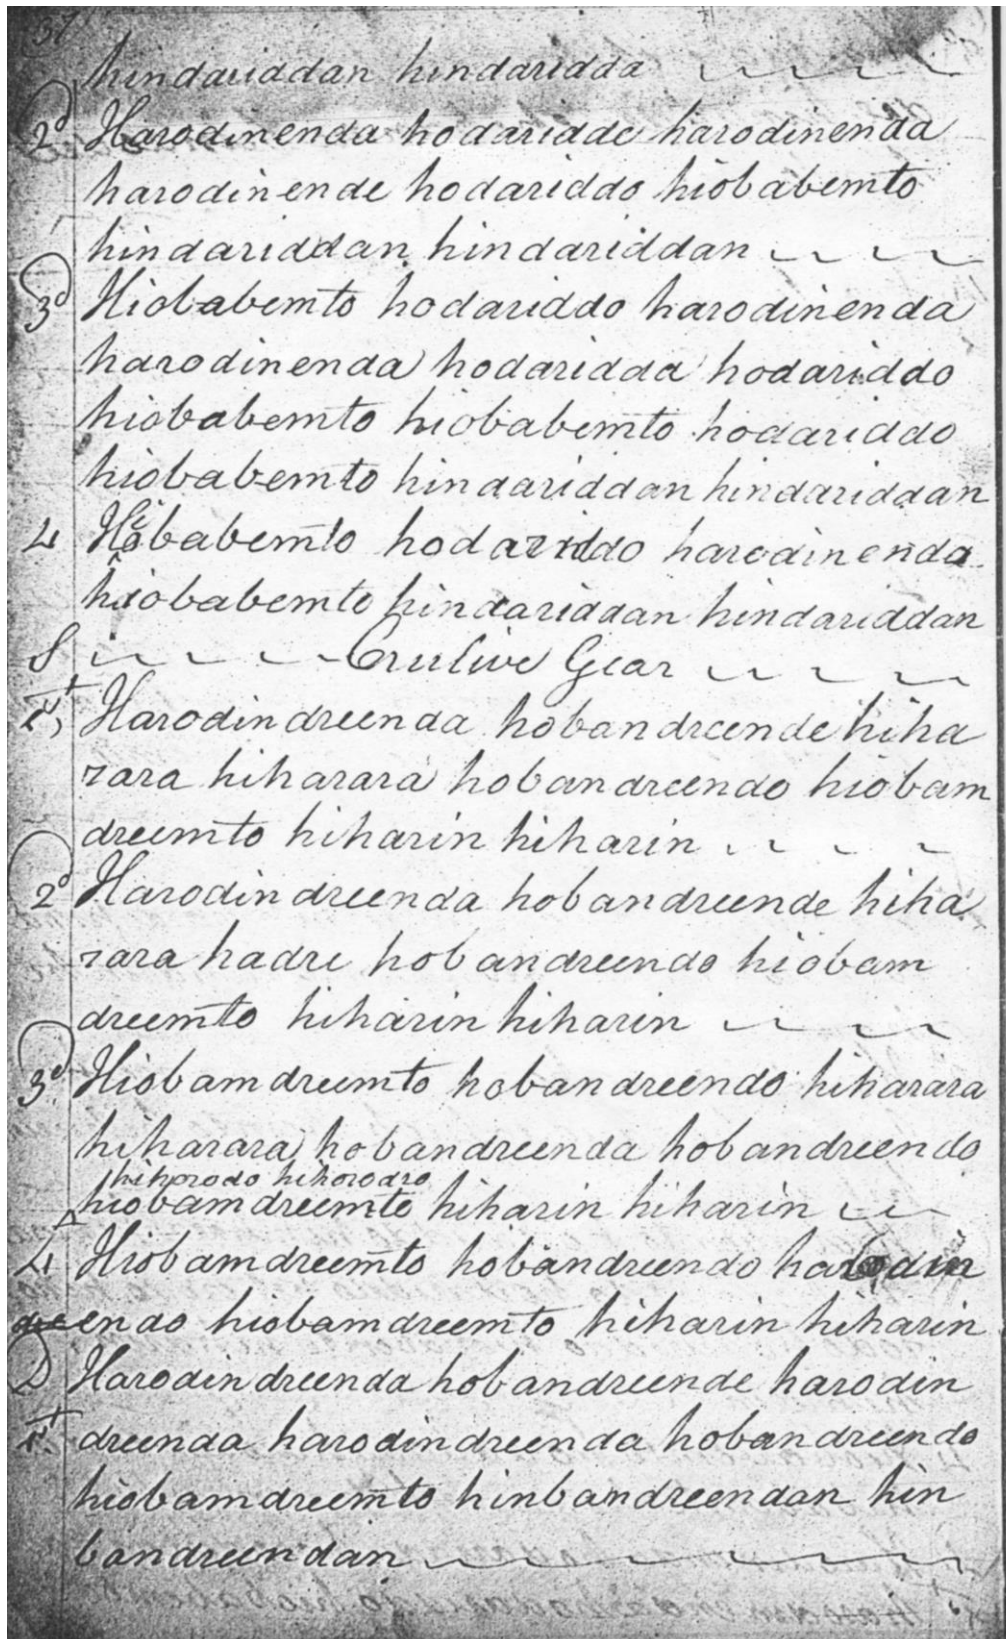 37
hindariddan hindaridda
2d Harodinenda hodaridde harodinenda
harodinende hodariddo hiobabemto
hindariddan hindariddan
3d Hiobabemto hodariddo harodinenda
harodinenda hodaridda hodariddo
hiobabemto hiobabemto hodariddo
hiobabemto hindariddan hindariddan
4 Hiobabemto hodariddo harodinenda
hiobabemto hindariddan hindariddan
S Crulive Gear
1st Harodindreenda hobandreende hiha
rara hiharara hobandreendo hiobam
dreemto hiharin hiharin
2d Harodindreenda hobandreende hiha
rara hadre hobandreendo hiobam
dreemto hiharin hiharin
3d Hiobamdreemto hobandreendo hiharara
hiharara hobandreenda hobandreendo
hihorodo hihorodro
hiobamdreemto hiharin hiharin
4 Hiobamdreemto hobandreendo harodin
endo hiobamdreemto hiharin hiharin
D Harodindreenda hobandreende harodin
1st dreenda harodindreenda hobandreendo
hiobamdreemto hinbandreendan hin
bandreendan